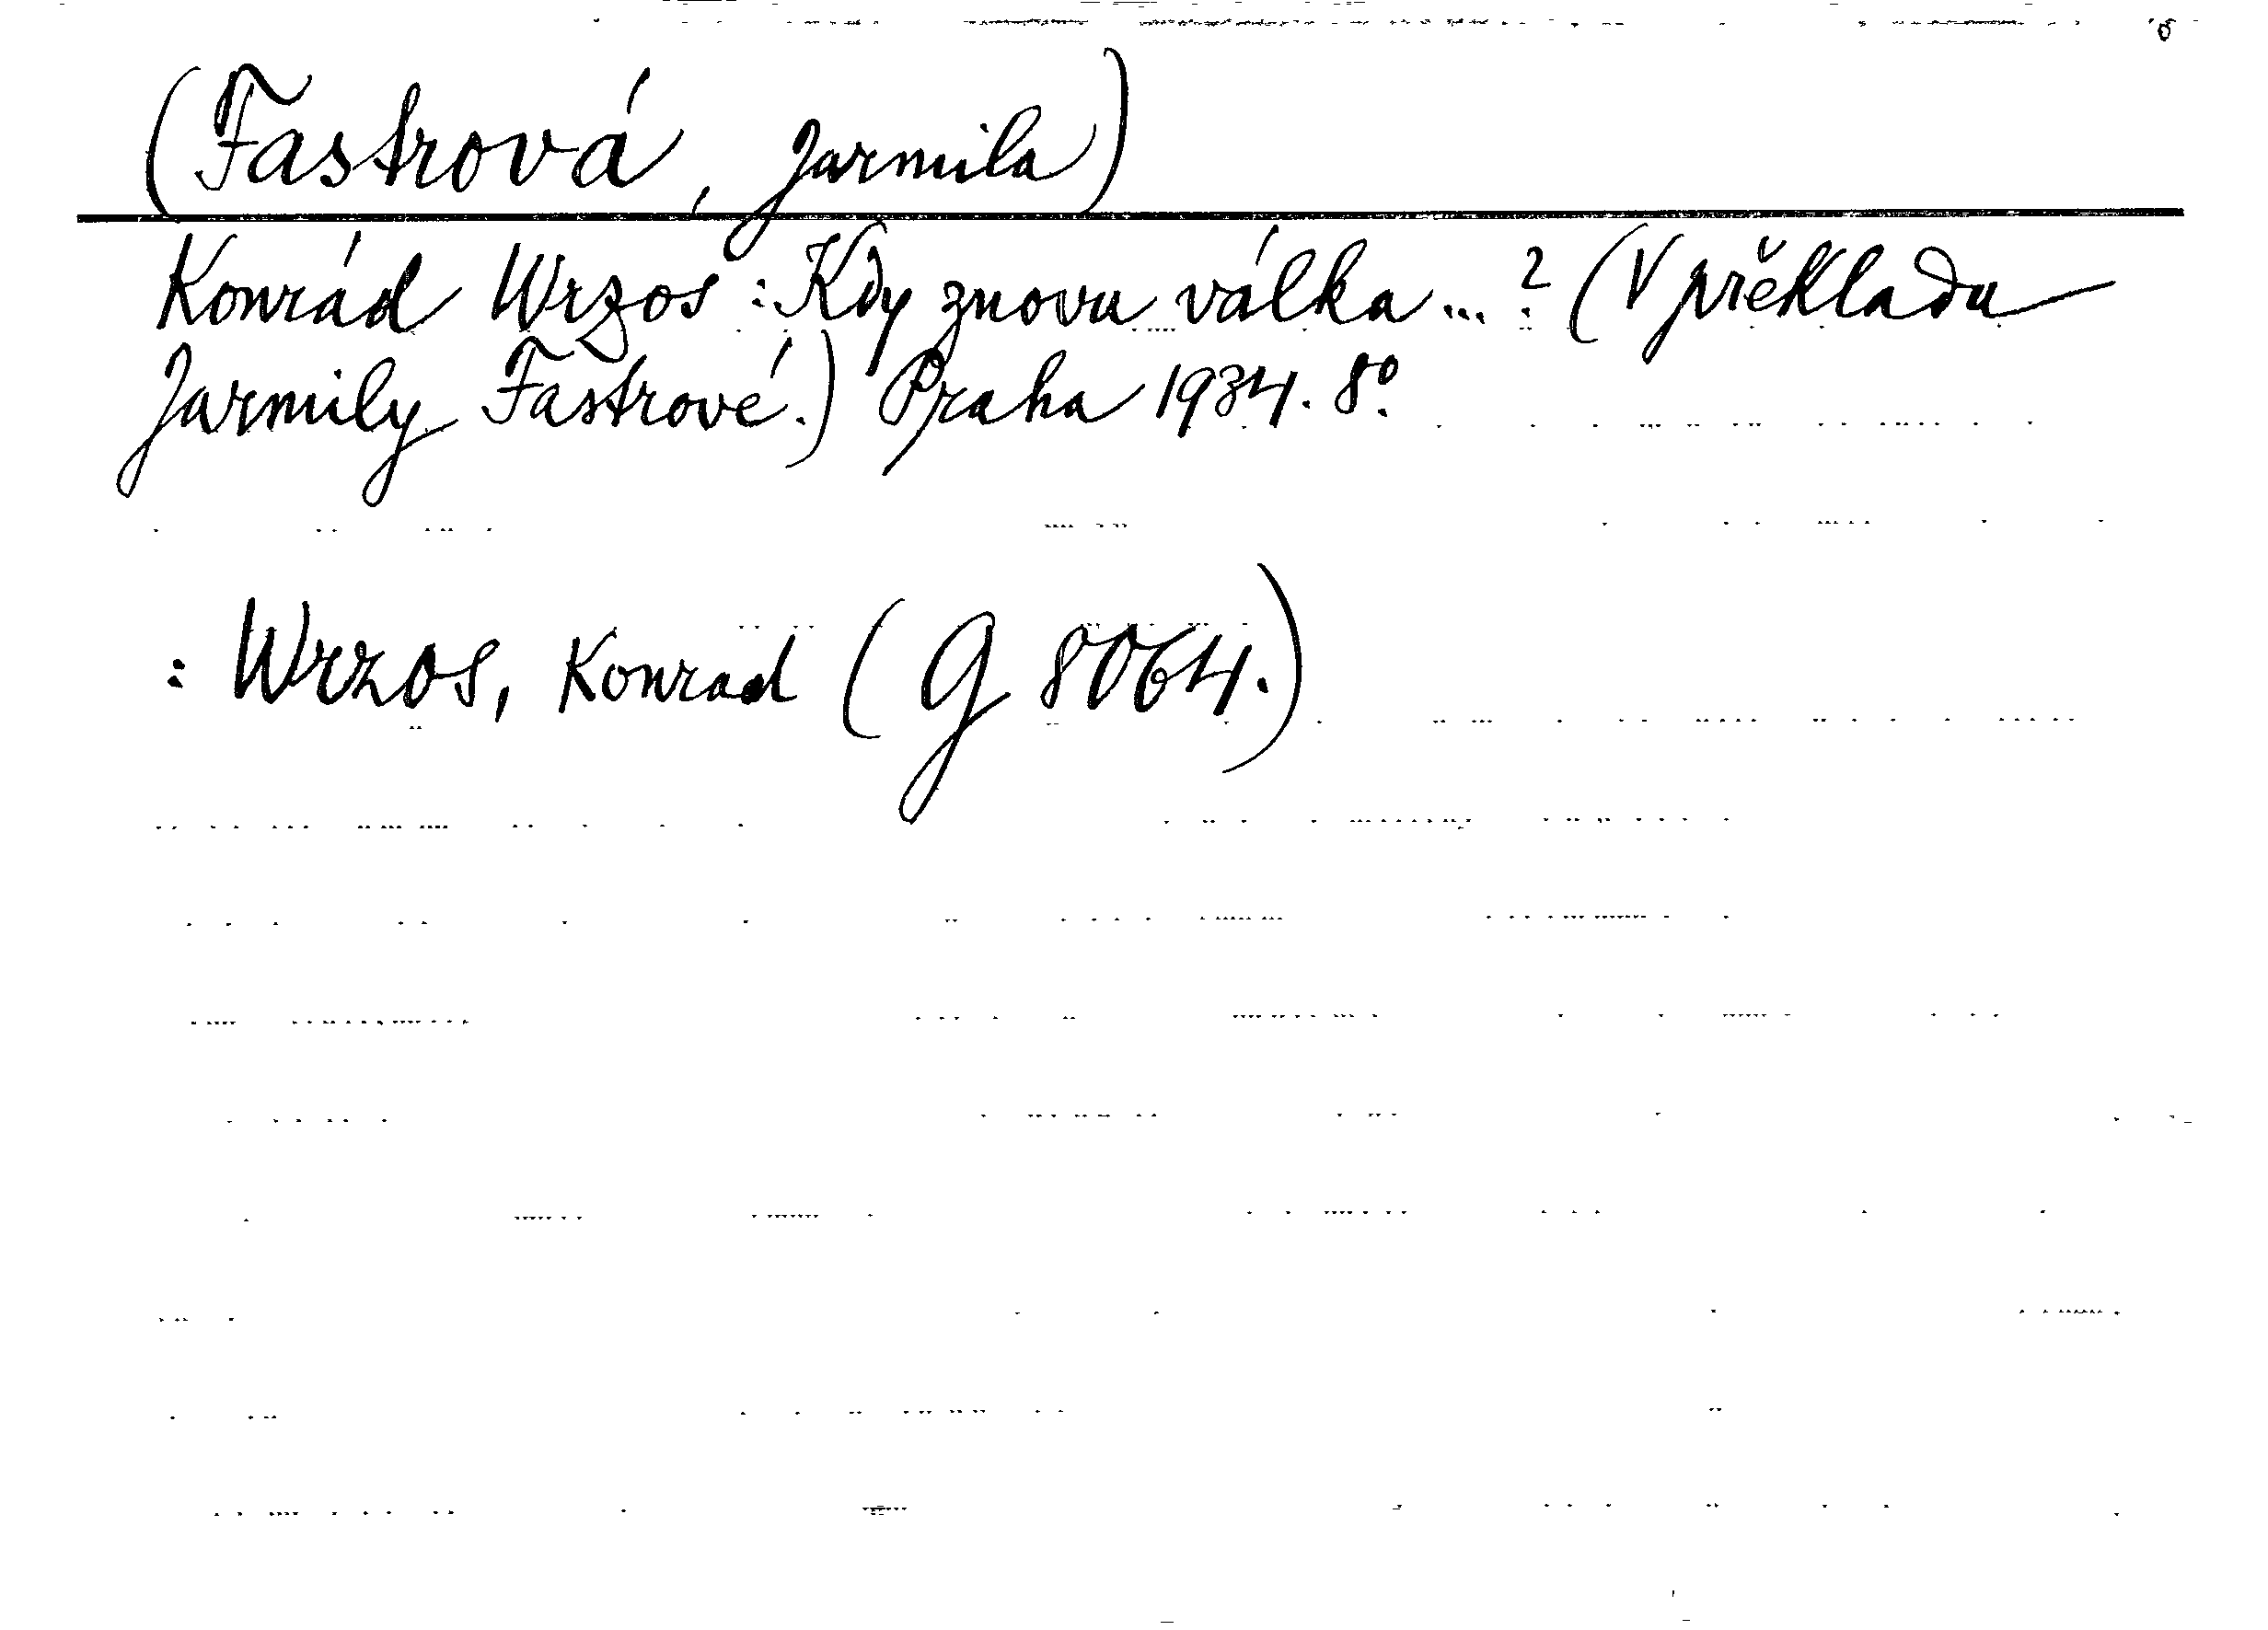 (Fastrová, Jarmila)
Konrád Wrzos: Kdy znovu válka...? (V překladu
Jarmily Fastrové.) Praha 1934. 8°.
: Wrzos, Konrad (G 8064.)